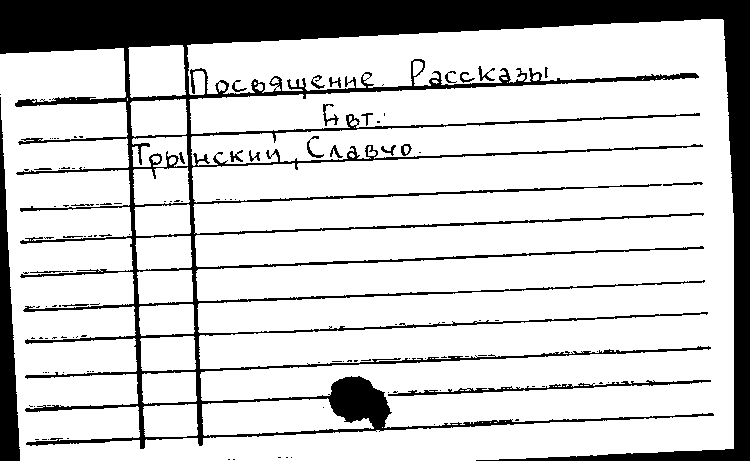 Посвящение. Рассказы.
Авт.:
Трынский, Славчо.